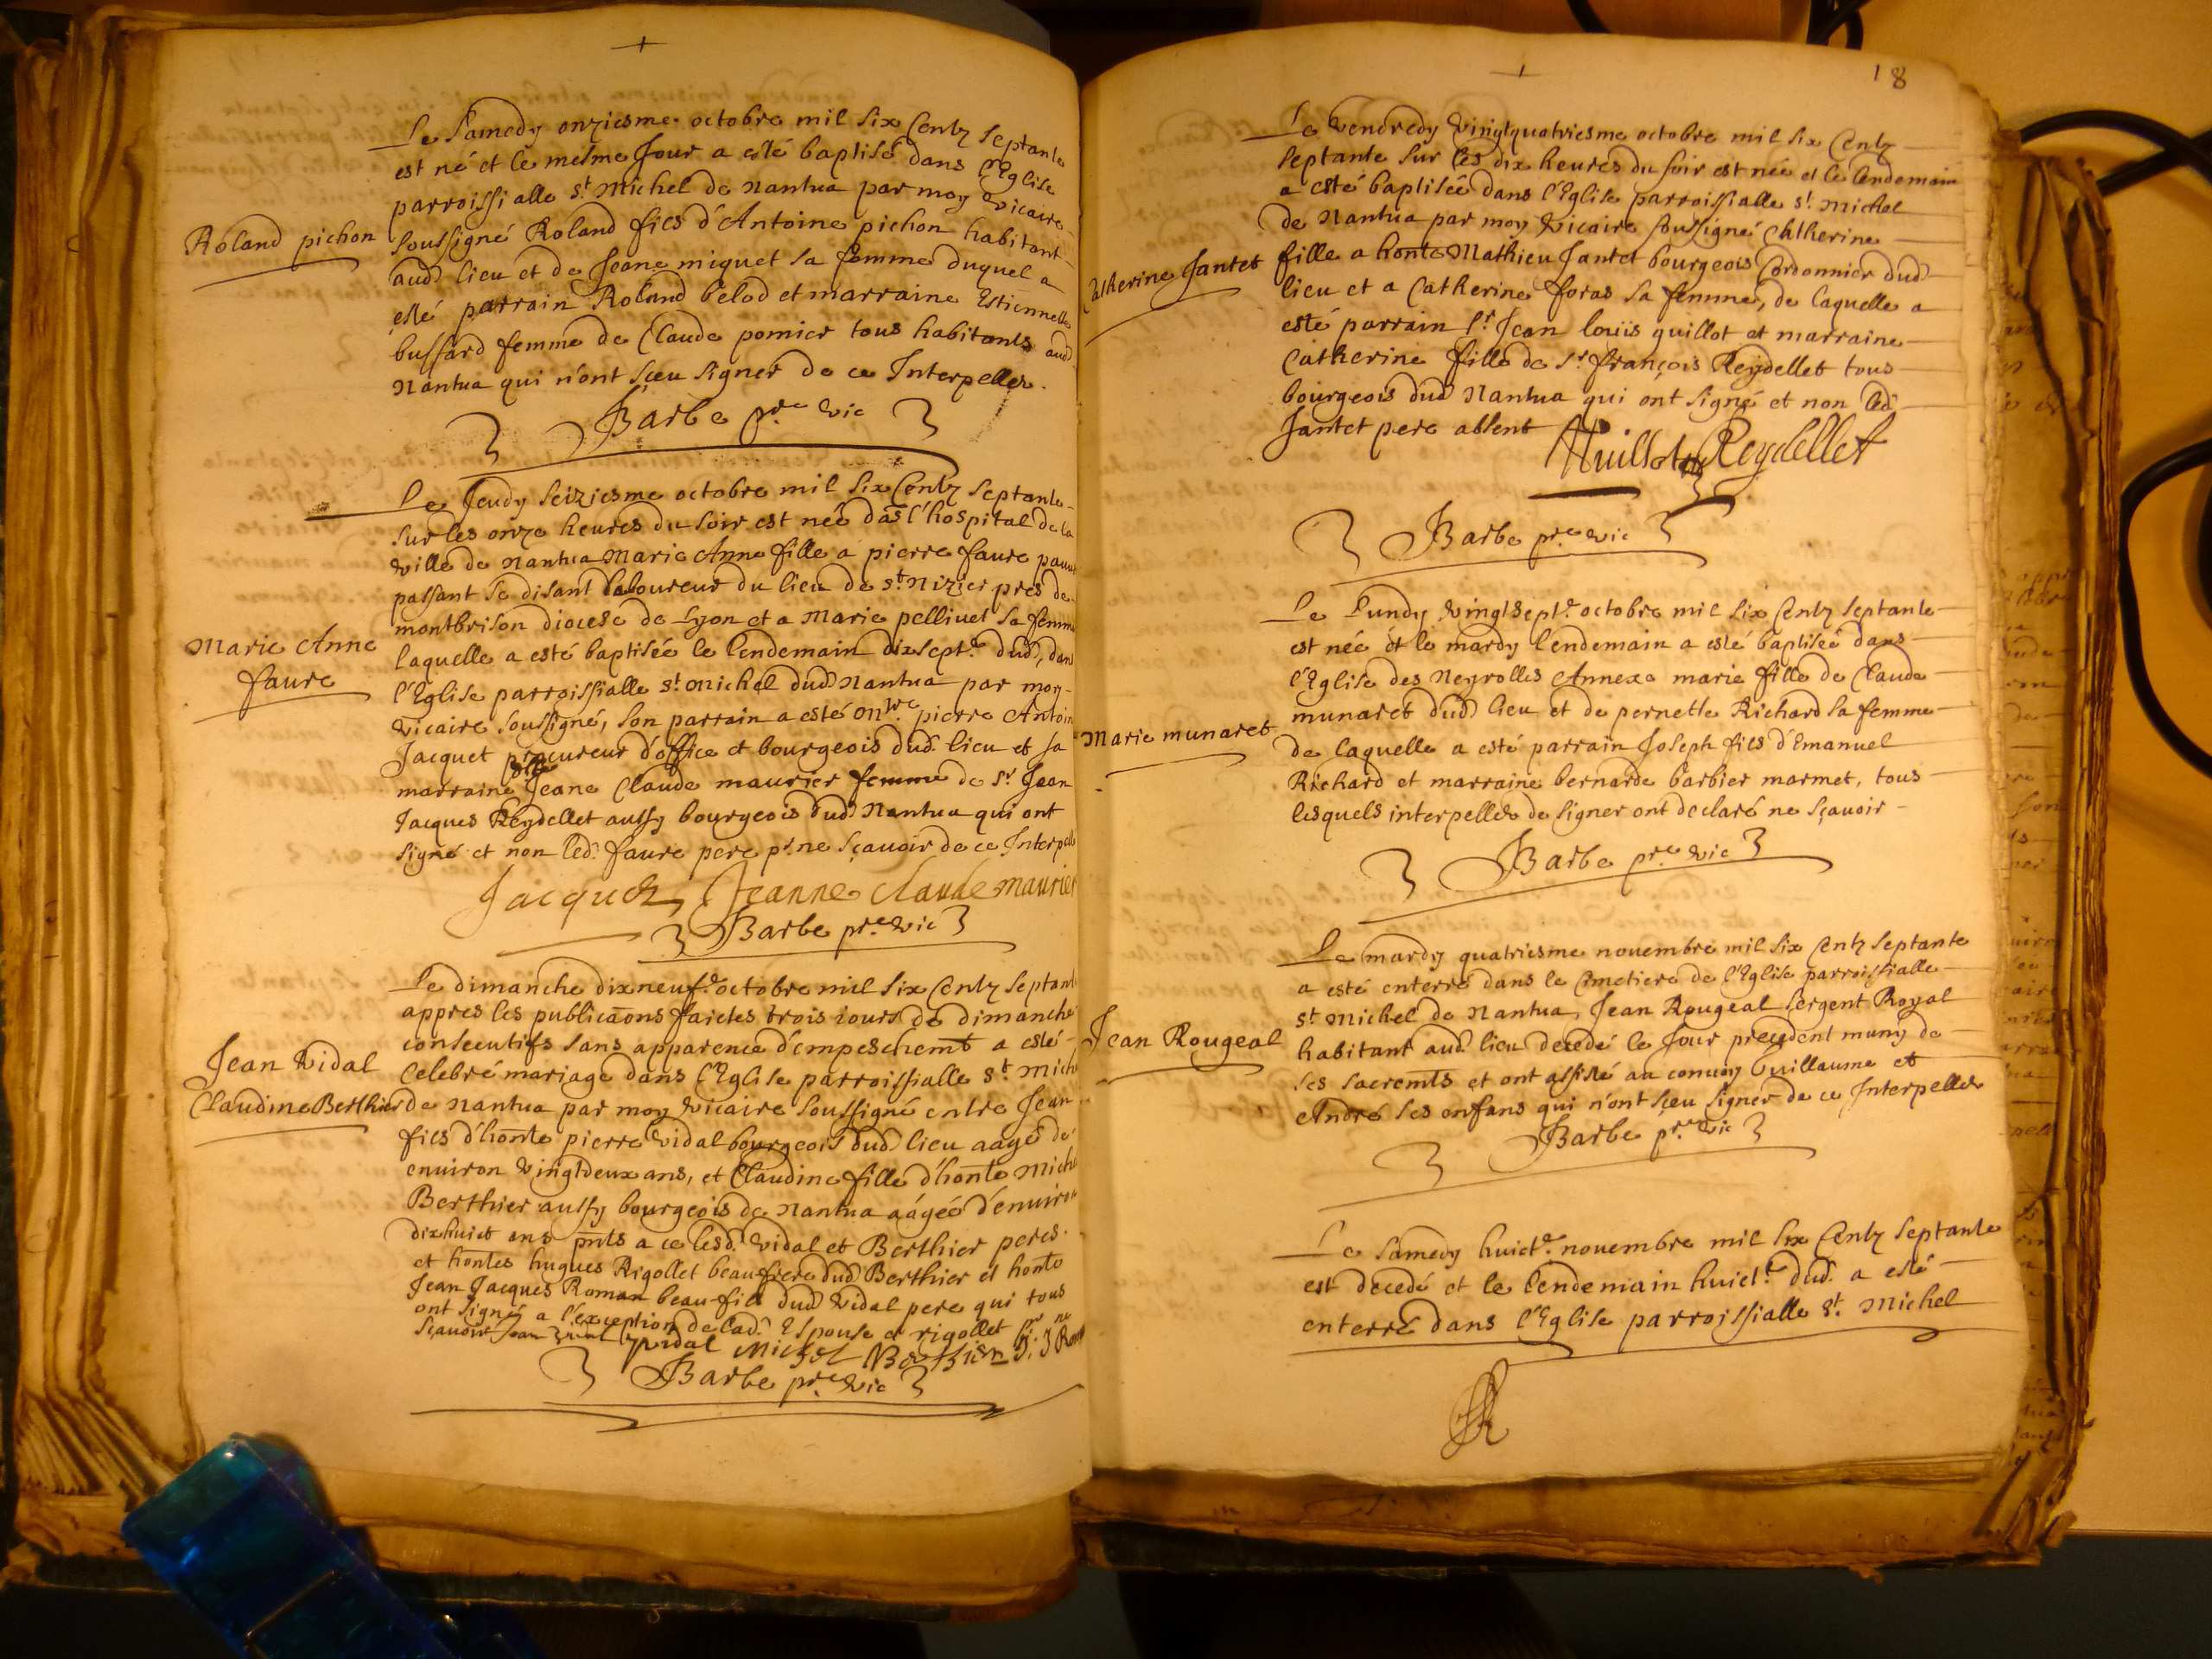 Le Samedy onziesme octobre mil six Centz septante
est né et le mesme Jour a esté baptisé dans l'Eglise
parroissialle st. Michel de Nantua par moy vicaire
Roland pichon
soussigné Roland fils d'Antoine pichon habitant
aud. lieu et de Jeane miguet sa femme duquel a
esté parrain Roland belod et marraine Estiennette
bussard femme de Claude pomier tous habitants aud.
Nantua qui n'ont sçeu signer de ce Interpellez.
Barbe pre. vic
Le Jeudy seiziesme octobre mil six Centz septante
sur les onze heures du soir est née das l'hospital de la
ville de Nantua Marie Anne fille a pierre faure pauvre
passant se disant laboureur du lieu de st Nizier pres de
montbrison diocese de Lyon et a Marie pelliuet sa femme
Marie Anne
faure
laquelle a esté baptisée le lendemain dixsept.e dud., dans
l'Eglise parroissialle st. Michel dud. Nantua par moy
vicaire soussigné, son parrain a esté Mre. pierre Antoine
Jacquet procureur d'office et bourgeois dud. lieu et sa
marraine Jeane Claude maurier femme de sr Jean
Jacques Reydellet aussy bourgeois dud. Nantua qui ont
signé et non led. faure pere pr. ne sçauoir de ce Interpellé
Jacquet Jeanne claude maurier
Barbe pre. vic
Le dimanche dixneuf.e octobre mil six Centz septante
appres les publicaons faictes trois iours de dimanche
consecutifs sans apparence d'empeschemt a esté
Jean Vidal
Claudine Berthier
Celebré mariage dans l'Eglise parroissialle st. Michel
de Nantua par moy vicaire soussigné entre Jean
fils d'honte pierre vidal bourgeois dud. lieu aagé de
enuiron vingtdeux ans, et Claudine fille d'honte Michel
Berthier aussy bourgeois de Nantua aagée d'enuiron
dixhuict ans pnts a ce lesd. vidal et Berthier peres
et hontes hugues Rigollet beaufrere dud. Berthier et honte
Jean Jacques Roman beau-fils dud. vidal pere qui tous
ont signé a l'exception de lad. Espouse et rigollet pr ne
sçauoir Jean vidal p vidal Michel Berthier J. J Roman
Barbe pre. vic
18
Le vendredy vingtquatriesme octobre mil six Centz
septante sur les dix heures du soir est née et le lendemain
a esté baptisée dans l'Eglise parroissialle st. Michel
de Nantua par moy vicaire soussigné Catherine
Catherine Jantet
fille a honte Mathieu Jantet bourgeois Cordonnier dud.
lieu et a Catherine foras sa femme, de laquelle a
esté parrain sr. Jean louïs guillot et marraine
Catherine fille de sr. françois Reydellet tous
bourgeois dud. Nantua qui ont signé et non led.
Jantet pere absent
Guillot Reydellet
Barbe pre. vic
Le Lundy vingtsept.e octobre mil six Centz septante
est née et le mardy lendemain a esté baptisée dans
l'Eglise des Neyrolles Annexe marie fille de Claude
Marie munaret
munaret dud. lieu et de pernette Richard sa femme
de laquelle a esté parrain Joseph fils d'Emanuel
Richard et marraine bernarde barbier marmet, tous
lesquels interpellez de signer ont declaré ne sçauoir
Barbe pre. vic
Le mardy quatriesme nouembre mil six Centz septante
a esté enterré dans le Cimetiere de l'Eglise parroissialle
Jean Rougeal
st Michel de Nantua, Jean Rougeal sergent Royal
habitant aud. lieu decedé le Jour precedent muny de
ses sacremts et ont assisté au conuoy Guillaume et
André ses enfans qui n'ont sceu signer de ce Interpellez
Barbe pre. vic
Le samedy huict.e nouembre mil six Centz septante
est decedé et le lendemain huict.e dud. a esté
enterré dans l'Eglise parroissialle st. Michel